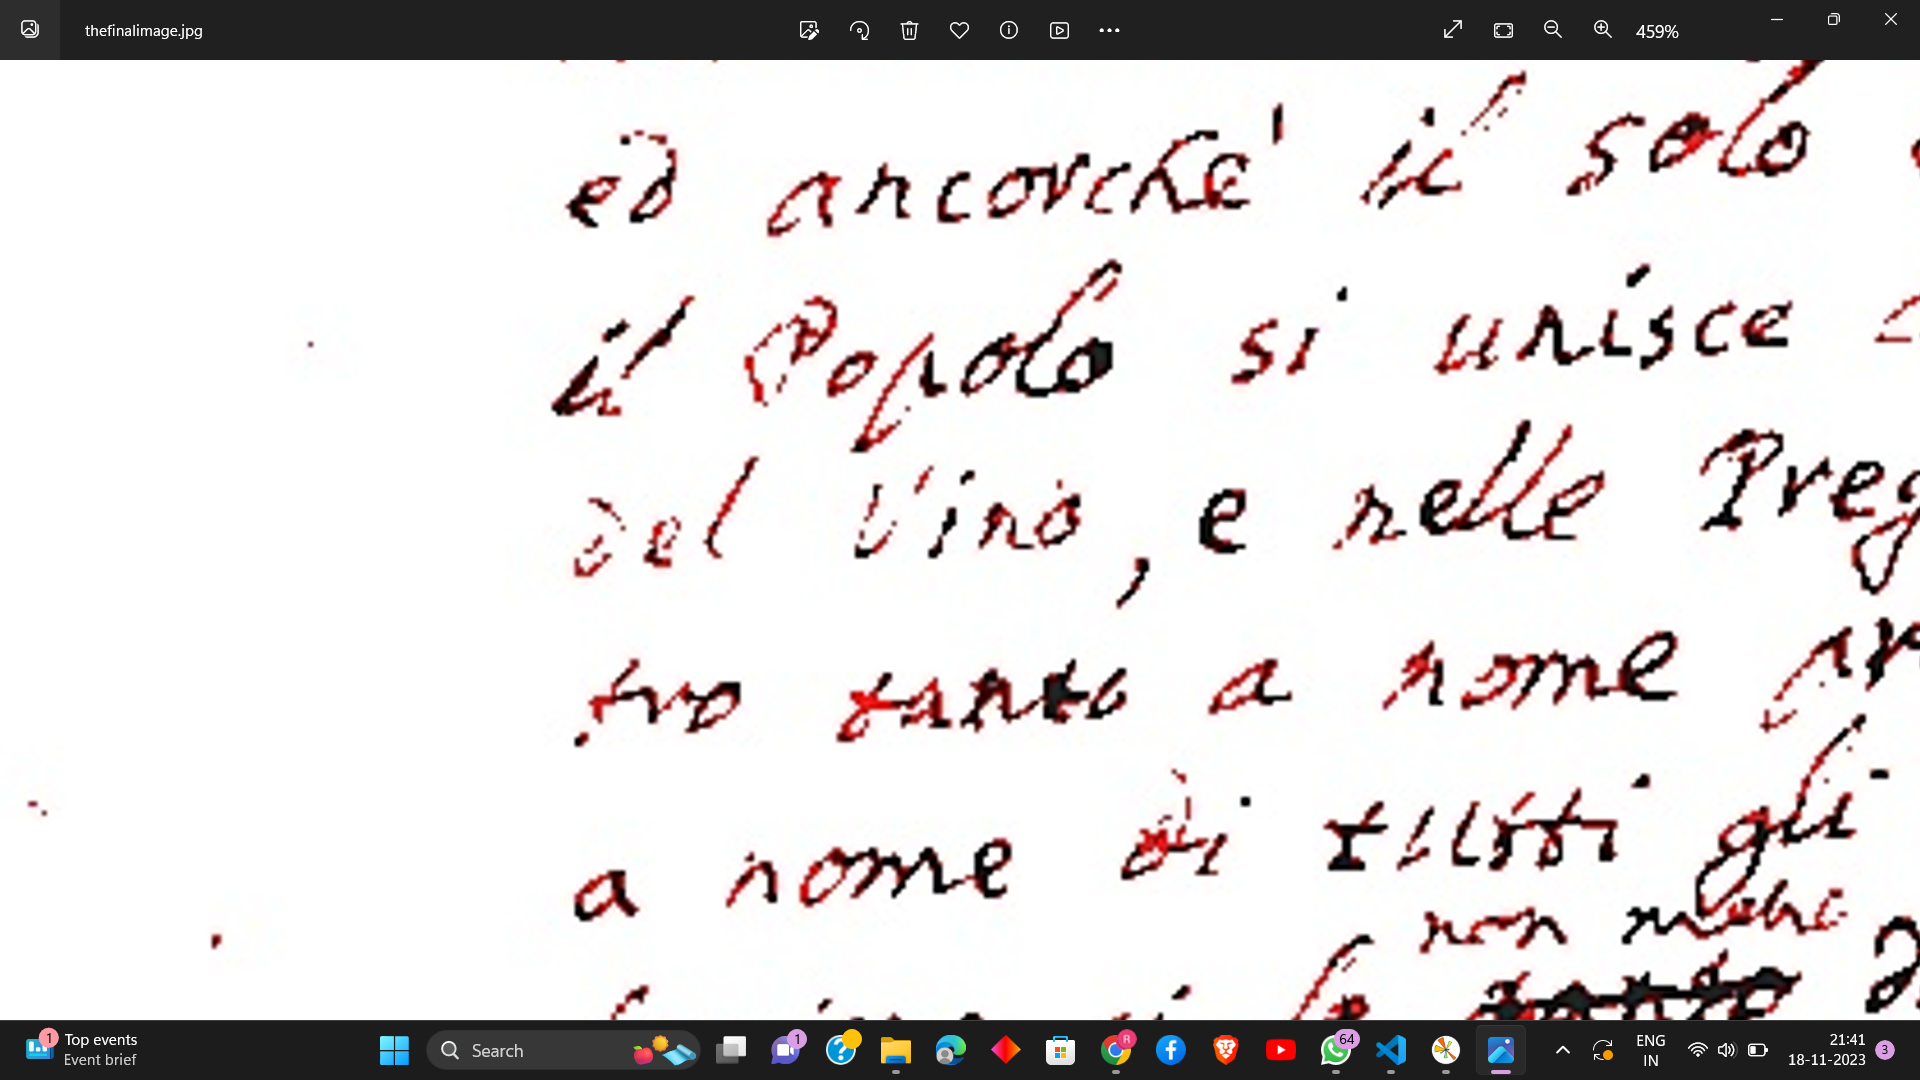 thefinalimage.jpg
459%
ed ancorche' il solo
il Popolo si unisce
del Vino, e nelle Preg
tro tanto a nome
a nome di tutti gli
non
1
Top events
Event brief
Search
1
R
64
ENG
IN
21:41
18-11-2023
3